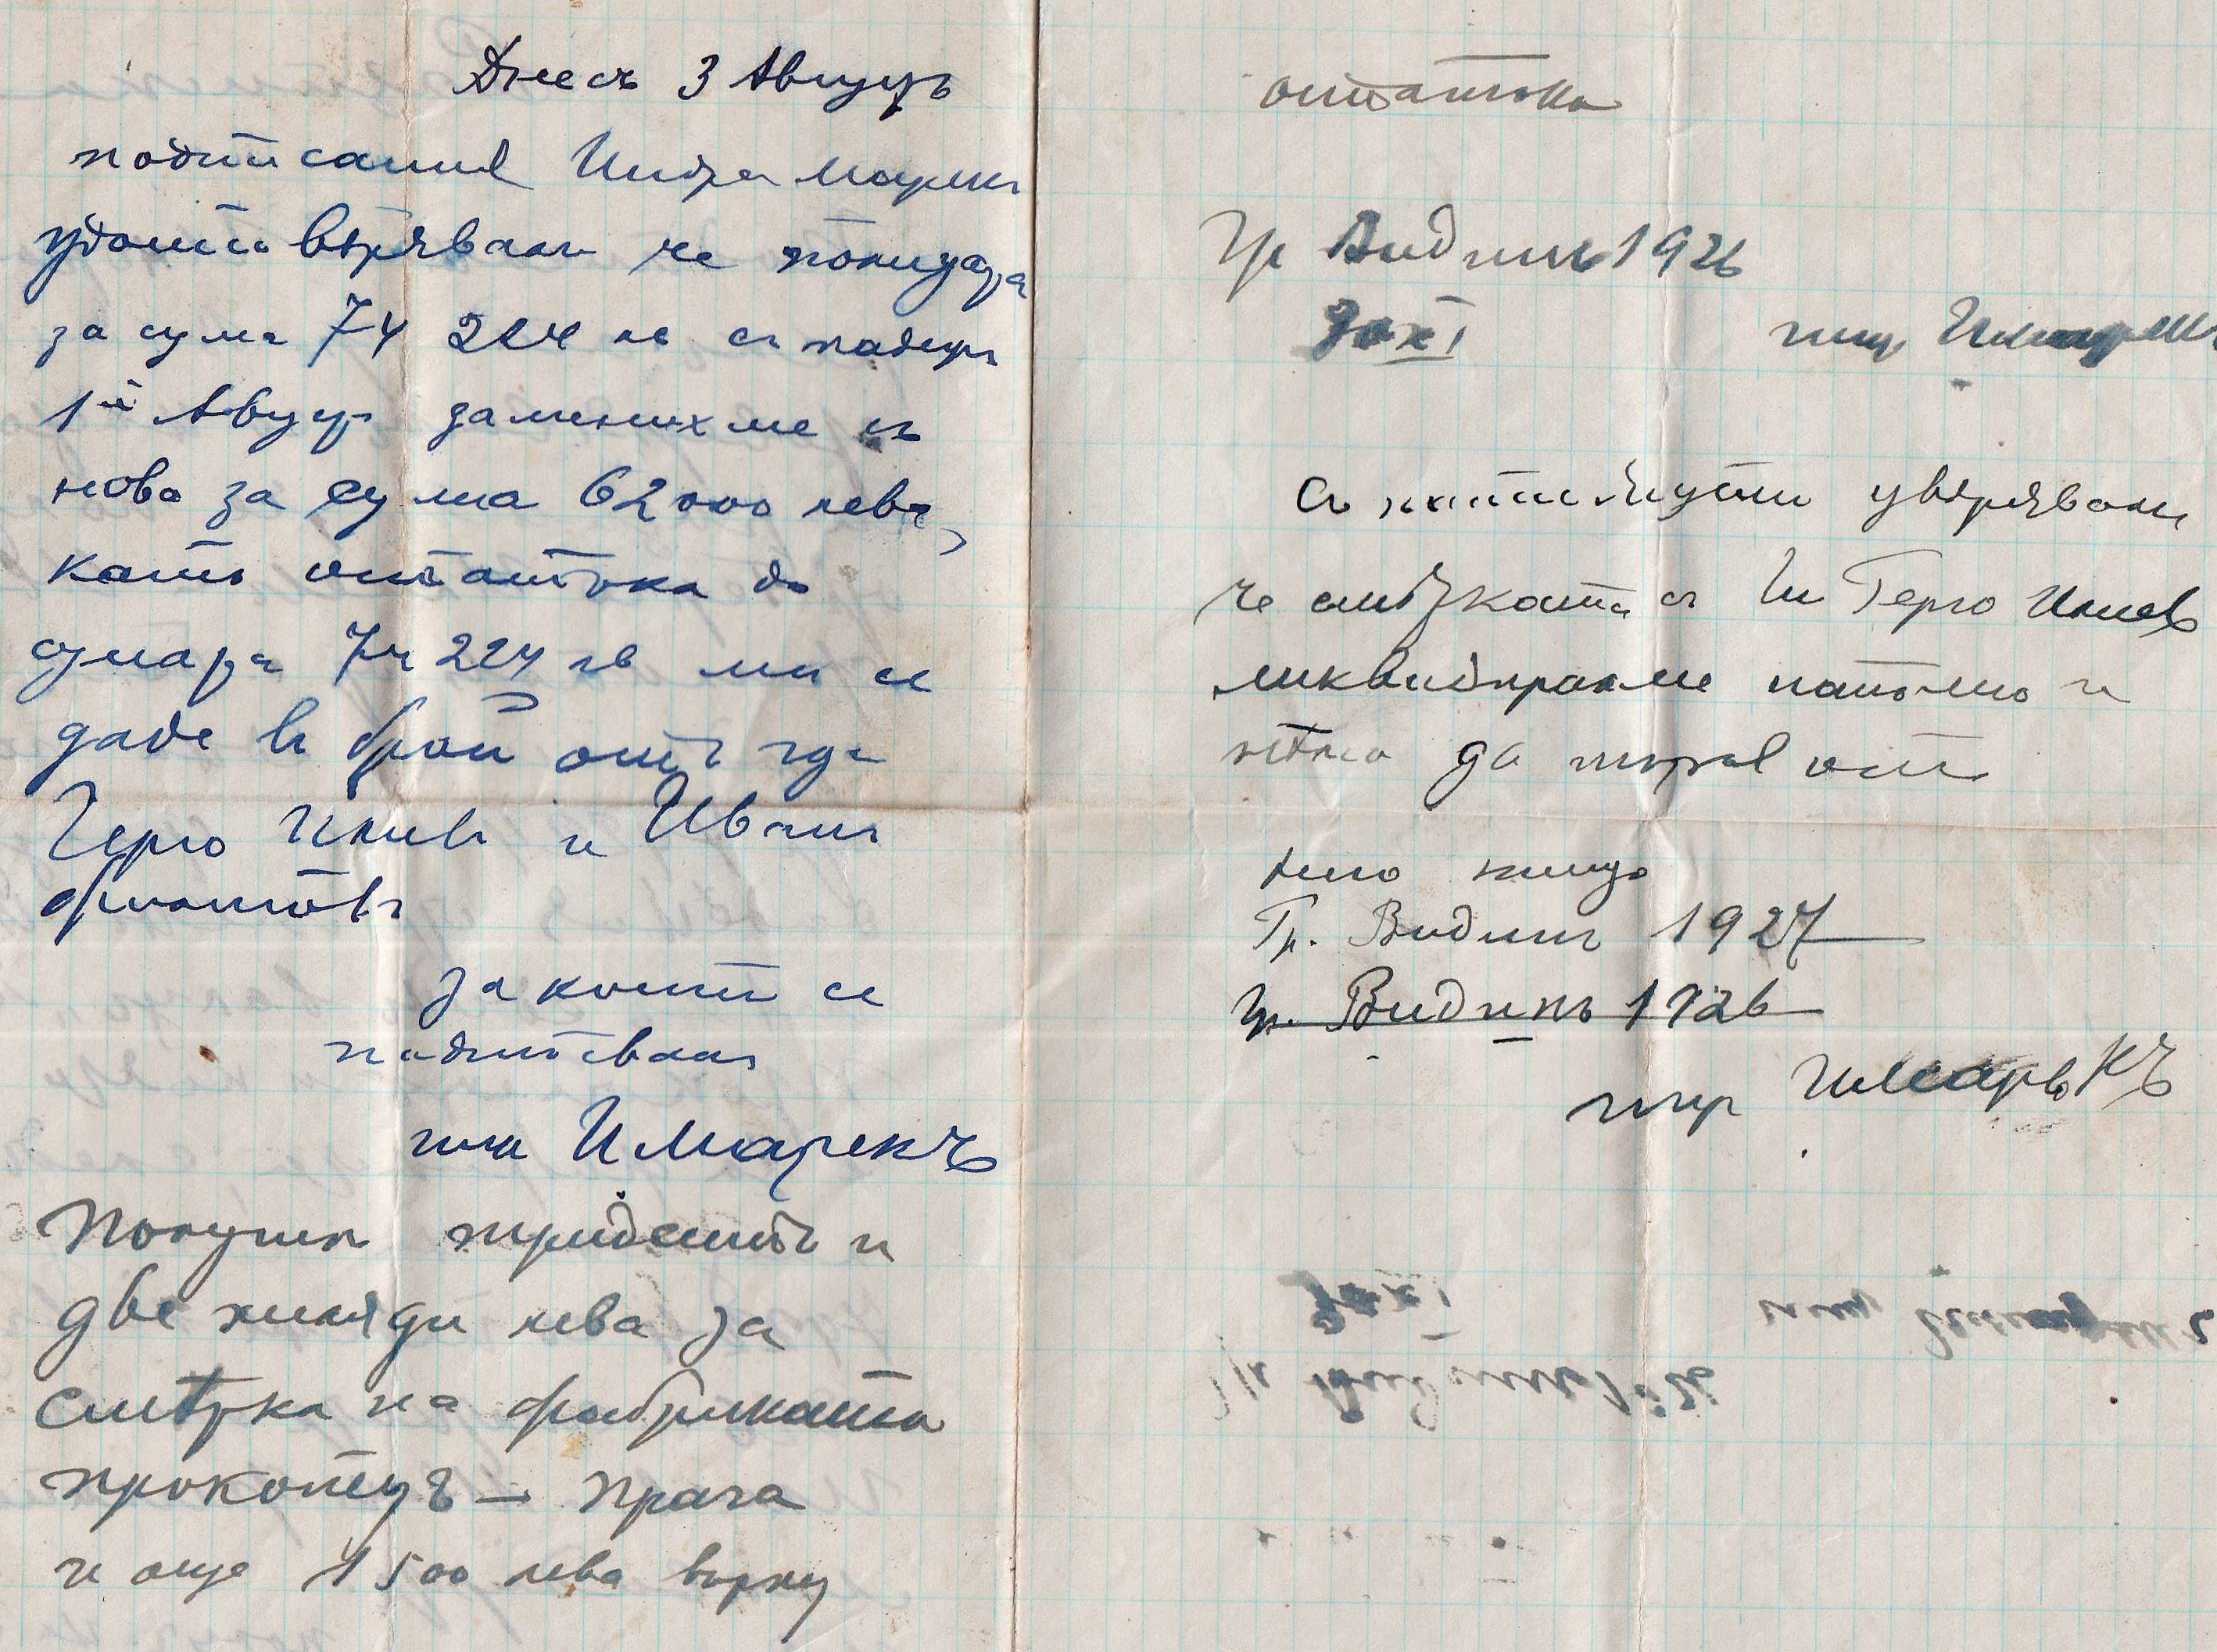 Днесъ 3 Августъ
подписания Индра Марек
удостоверявамъ че полицата
за сума 74 224 лв съ падежъ
1й Августъ заменихме съ
нова за сума 62000 лева,
като остатъка до
сумата 74 224 лв ми се
даде въ брой отъ г да
Герго Илиевъ и Иванъ
Флоровъ
за което се
подписвамъ
инж ИМарекъ
Получих тридесетъ и
две хиляди лева за
сметка на фабриката
прокопецъ — Прага
и още 1500 лева върху
остатъка
Гр Видинъ 1926
30 XI
инж ИМарекъ
Съ настоящото уверявамъ
че сметката съ Ив Герго Илиев
ликвидирахме напълно и
нѣма да търся от
него нищо
Гр. Видинъ 1927
Гр. Видинъ 1926
инж ИМарекЪ